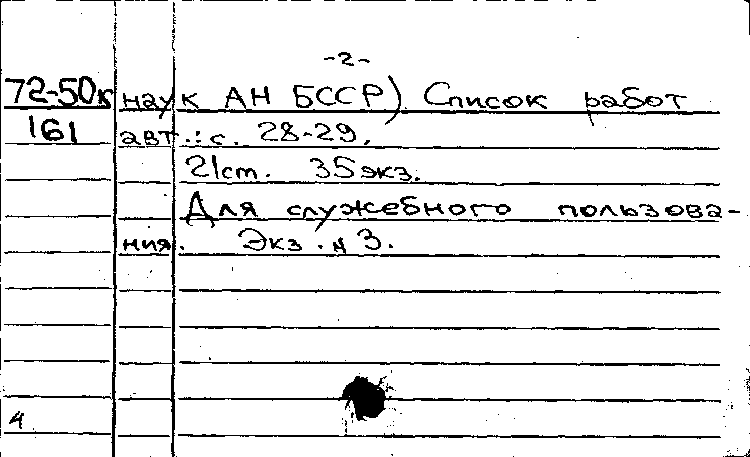 -2-
72-50к наук АН БССР) Список работ
161 авт.: с. 28-29.
21ст. 35экз.
Для служебного пользова-
ния. Экз. н 3.
4